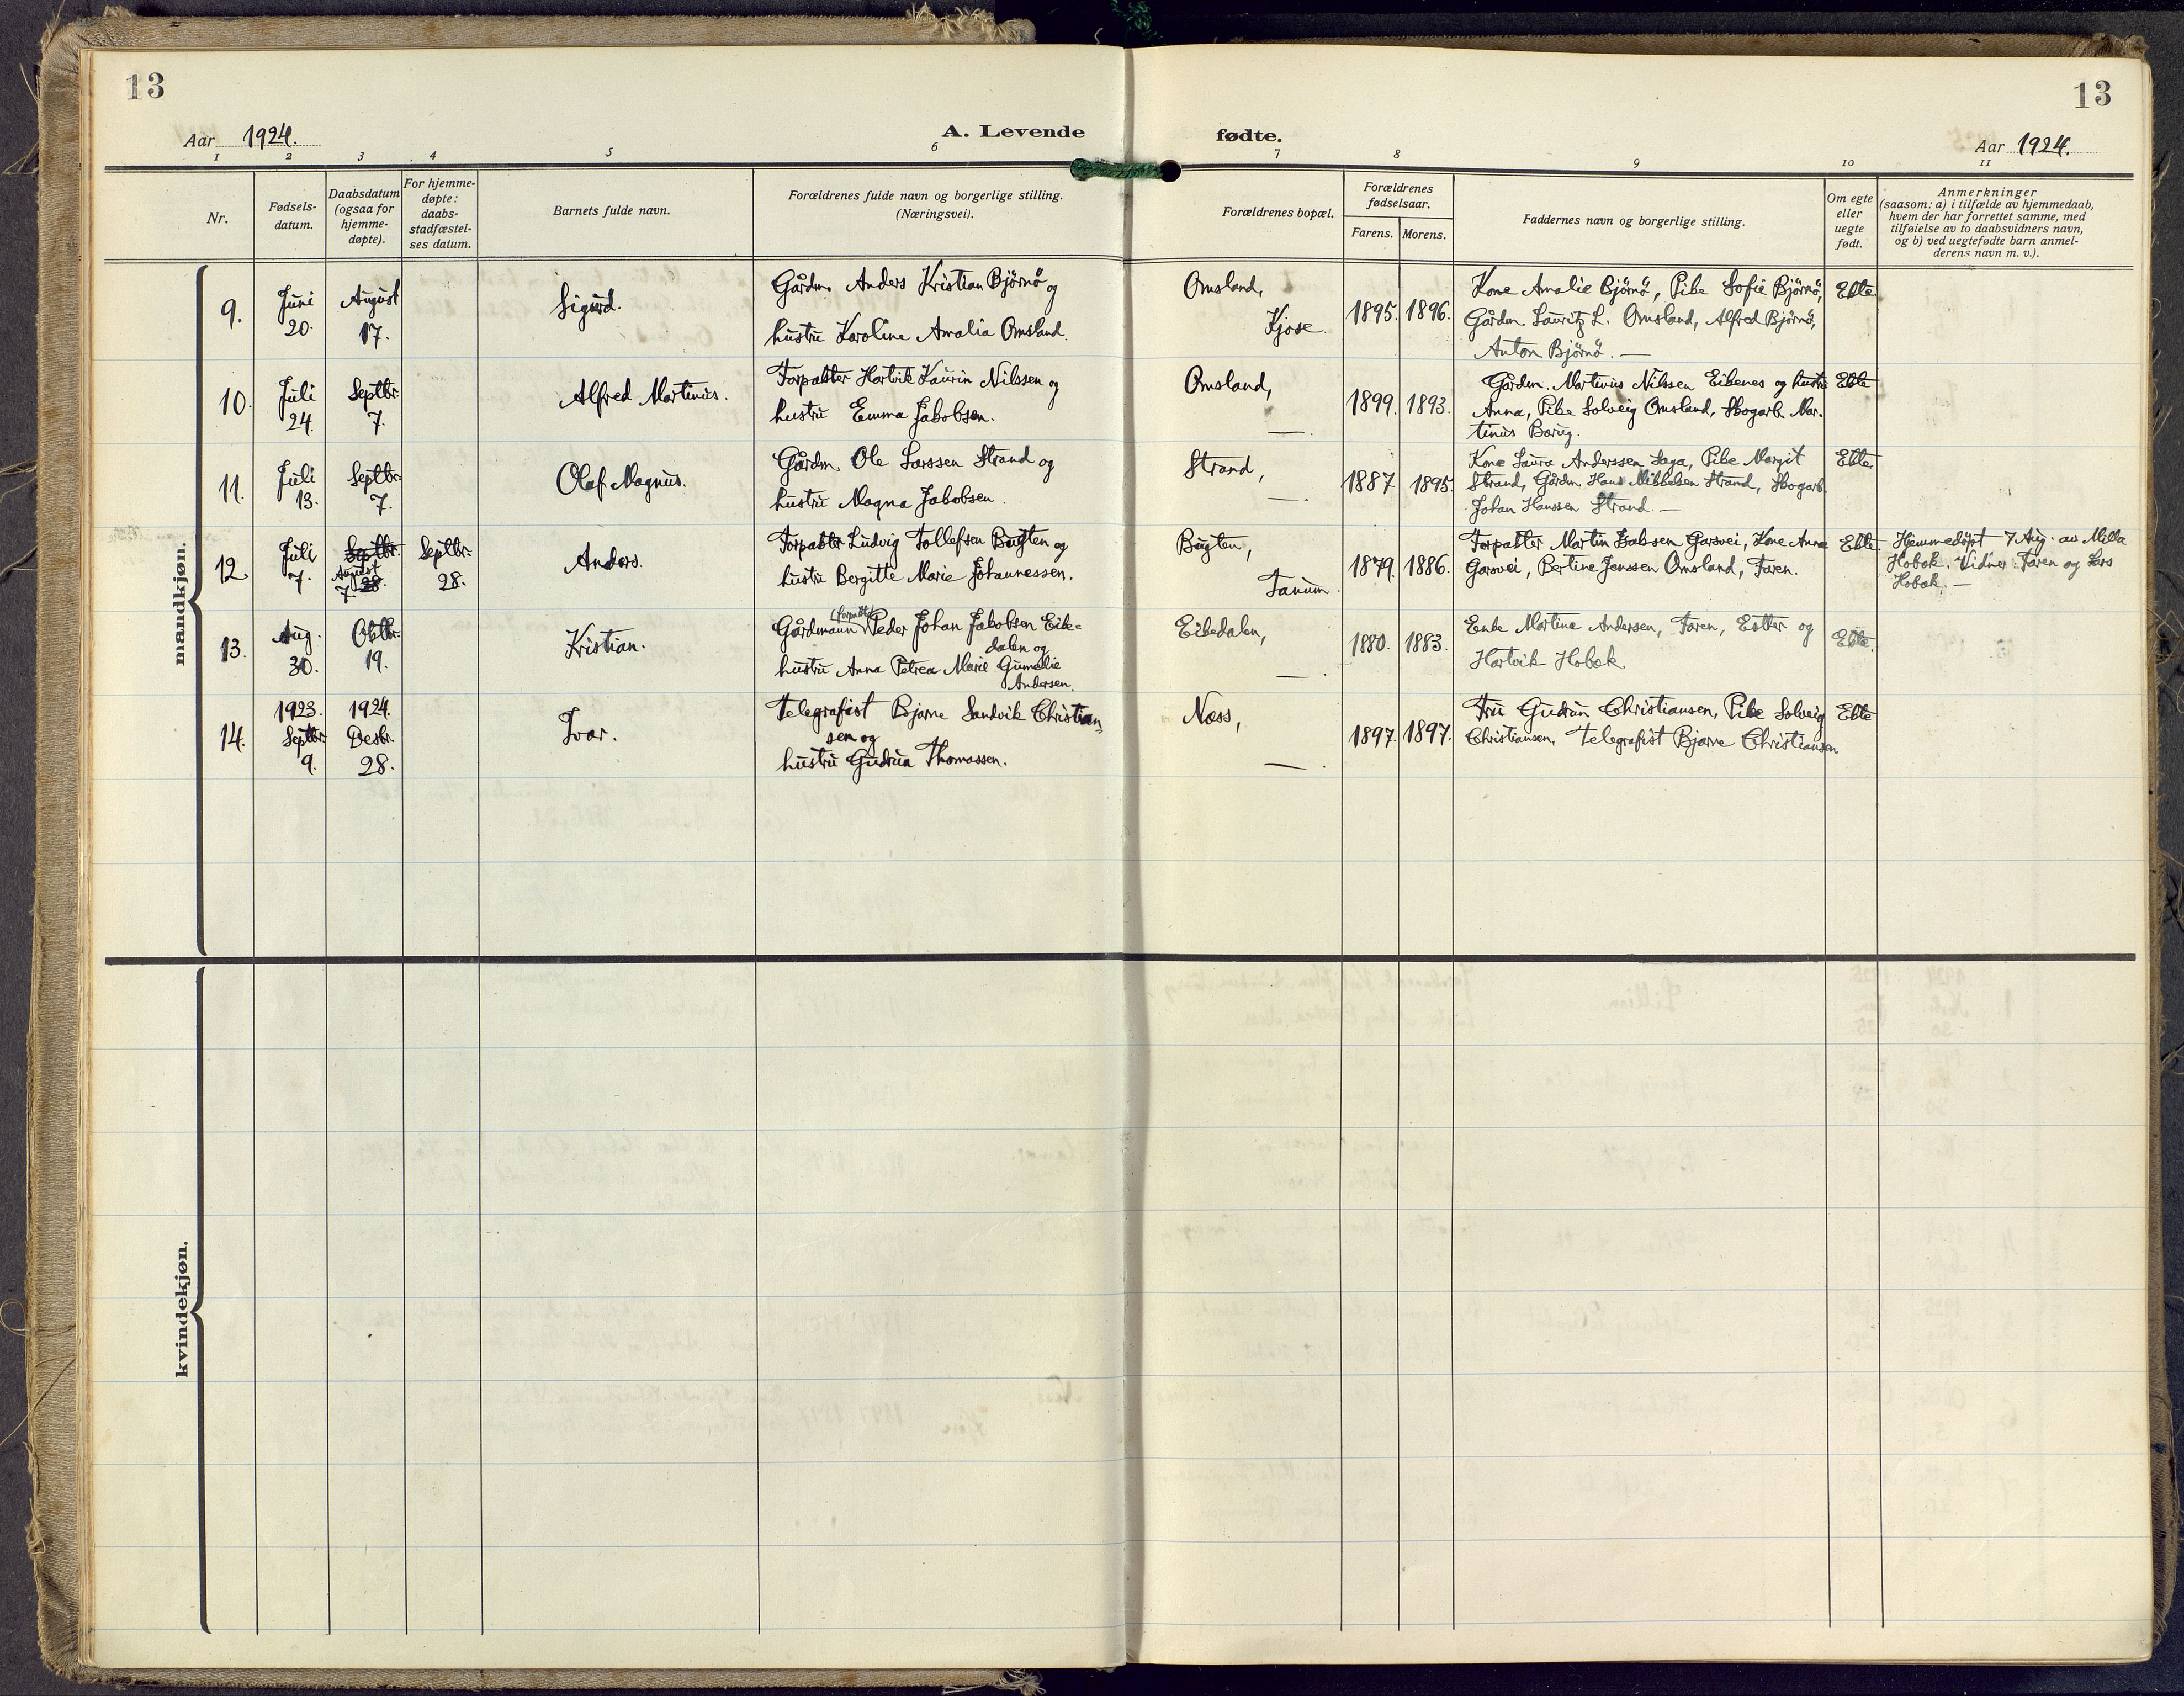 13
13
Aar 1924.
A. Levende
fødte.
Aar 1924.
1 2 3 4 5 6 7 8 9 10 11
Nr.
Fødsels-
datum.
Daabsdatum
(ogsaa for
hjemme-
døpte).
For hjemme-
døpte:
daabs-
stadfæstel-
ses datum.
Barnets fulde navn.
Forældrenes fulde navn og borgerlige stilling.
(Næringsvei).
Forældrenes bopæl.
Forældrenes
fødselsaar.
Farens. Morens.
Faddernes navn og borgerlige stilling.
Om egte
eller
uegte
født.
Anmerkninger
(saasom: a) i tilfælde av hjemmedaab,
hvem der har forrettet samme, med
tilføielse av to daabsvidners navn,
og b) ved uegtefødte barn anmel-
derens navn m. v.).
mandkjøn.
9.
Juni
20.
August
17.
Sigurd.
Gårdm. Anders Kristian Bjørnø og
hustru Karoline Amalia Omsland.
Omsland,
Kjose.
1895. 1896.
Kone Amalie Bjørnø, Pike Sofie Bjørnø,
Gårdm. Lauritz L. Omsland, Alfred Bjørnø,
Anton Bjørnø. —
Ekte
10.
Juli
24.
Septbr.
7.
Alfred Martinus.
Forpakter Hartvik Kaurin Nilssen og
hustru Emma Jakobsen.
Omsland,
—.
1899. 1893.
Gårdm. Martinus Nilssen Eikenes og hustru
Anna, Pike Solveig Omsland, Skogarb. Mar-
tinus Barug.
Ekte
11.
Juli
13.
Septbr.
7.
Olaf Magnus.
Gårdm. Ole Larssen Strand og
hustru Magna Jakobsen.
Strand,
—.
1887 1895.
Kone Laura Anderssen Saga, Pike Margit
Strand, Gårdm Hans Mikkelsen Strand, Skogarb.
Johan Hanssen Strand. —
Ekte
12.
Juli
7.
Septbr.
August
7. 28.
Septbr.
28.
Anders.
Forpakter Ludvig Tollefsen Bugten og
hustru Bergitte Marie Johannessen.
Bugten,
Tanum.
1879. 1886.
Forpakter Martin Isaksen Garsvei, Kone Anna
Garsvei, Bertine Jenssen Omsland, Faren.
Ekte.
Hjemmedøpt 7 Aug. av Milla
Hobæk. Vidner: Faren og Lars
Hobæk. —
13.
Aug.
30.
Oktbr.
19.
Kristian.
(forpakter)
Gårdmann Peder Johan Jakobsen Eike-
dalen og
hustru Anna Petrea Marie Gumelie
Andersen.
Eikedalen,
—.
1880. 1883.
Enke Martine Andersen, Faren, Ester og
Hartvik Hobæk.
Ekte.
14.
1923.
Septbr.
9.
1924.
Desbr.
28.
Ivar.
Telegrafist Bjarne Sandvik Christian-
sen og
hustru Gudrun Thomassen.
Næss,
—.
1897. 1897.
Fru Gudrun Christiansen, Pike Solveig
Christiansen, Telegrafist Bjarne Christiansen.
Ekte
kvindekjøn.